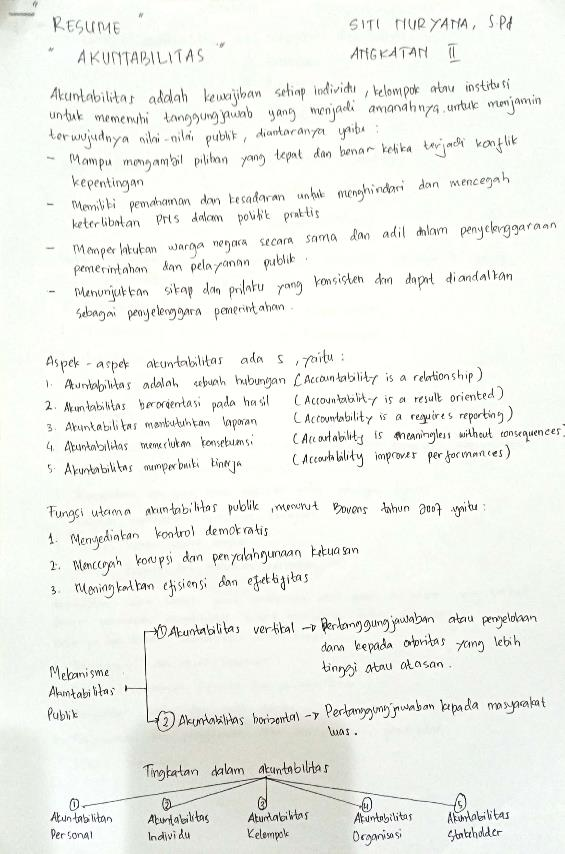 RESUME "
" AKUNTABILITAS "
SITI NURYANA, S.Pd
ANGKATAN II
Akuntabilitas adalah kewajiban setiap individu, kelompok atau institusi
untuk memenuhi tanggungjawab yang menjadi amanahnya. untuk menjamin
terwujudnya nilai-nilai publik, diantaranya yaitu :
- Mampu mengambil pilihan yang tepat dan benar ketika terjadi konflik
kepentingan
- Memiliki pemahaman dan kesadaran untuk menghindari dan mencegah
keterlibatan PNS dalam politik praktis
- Memperlakukan warga negara secara sama dan adil dalam penyelenggaraan
pemerintahan dan pelayanan publik.
- Menunjukkan sikap dan prilaku yang konsisten dan dapat diandalkan
sebagai penyelenggara pemerintahan.
Aspek-aspek akuntabilitas ada 5, yaitu :
1. Akuntabilitas adalah sebuah hubungan (Accountability is a relationship)
2. Akuntabilitas berorientasi pada hasil (Accountability is a result oriented)
3. Akuntabilitas membutuhkan laporan (Accountability is a requires reporting)
4. Akuntabilitas memerlukan konsekuensi (Accountability is meaningless without consequences)
5. Akuntabilitas memperbaiki kinerja (Accountability improves performances)
Fungsi utama akuntabilitas publik, menurut Bovens tahun 2007 yaitu :
1. Menyediakan kontrol demokratis
2. Mencegah korupsi dan penyalahgunaan kekuasan
3. Meningkatkan efisiensi dan efektifitas
Mekanisme
Akuntabilitas
Publik
① Akuntabilitas vertikal → Pertanggungjawaban atau pengelolaan
dana kepada otoritas yang lebih
tinggi atau atasan.
② Akuntabilitas horizontal → Pertanggungjawaban kepada masyarakat
luas.
Tingkatan dalam akuntabilitas
① ② ③ ④ ⑤
Akuntabilitan Akuntabilitas Akuntabilitas Akuntabilitas Akuntabilitas
Personal Individu Kelompok Organisasi Stakeholder